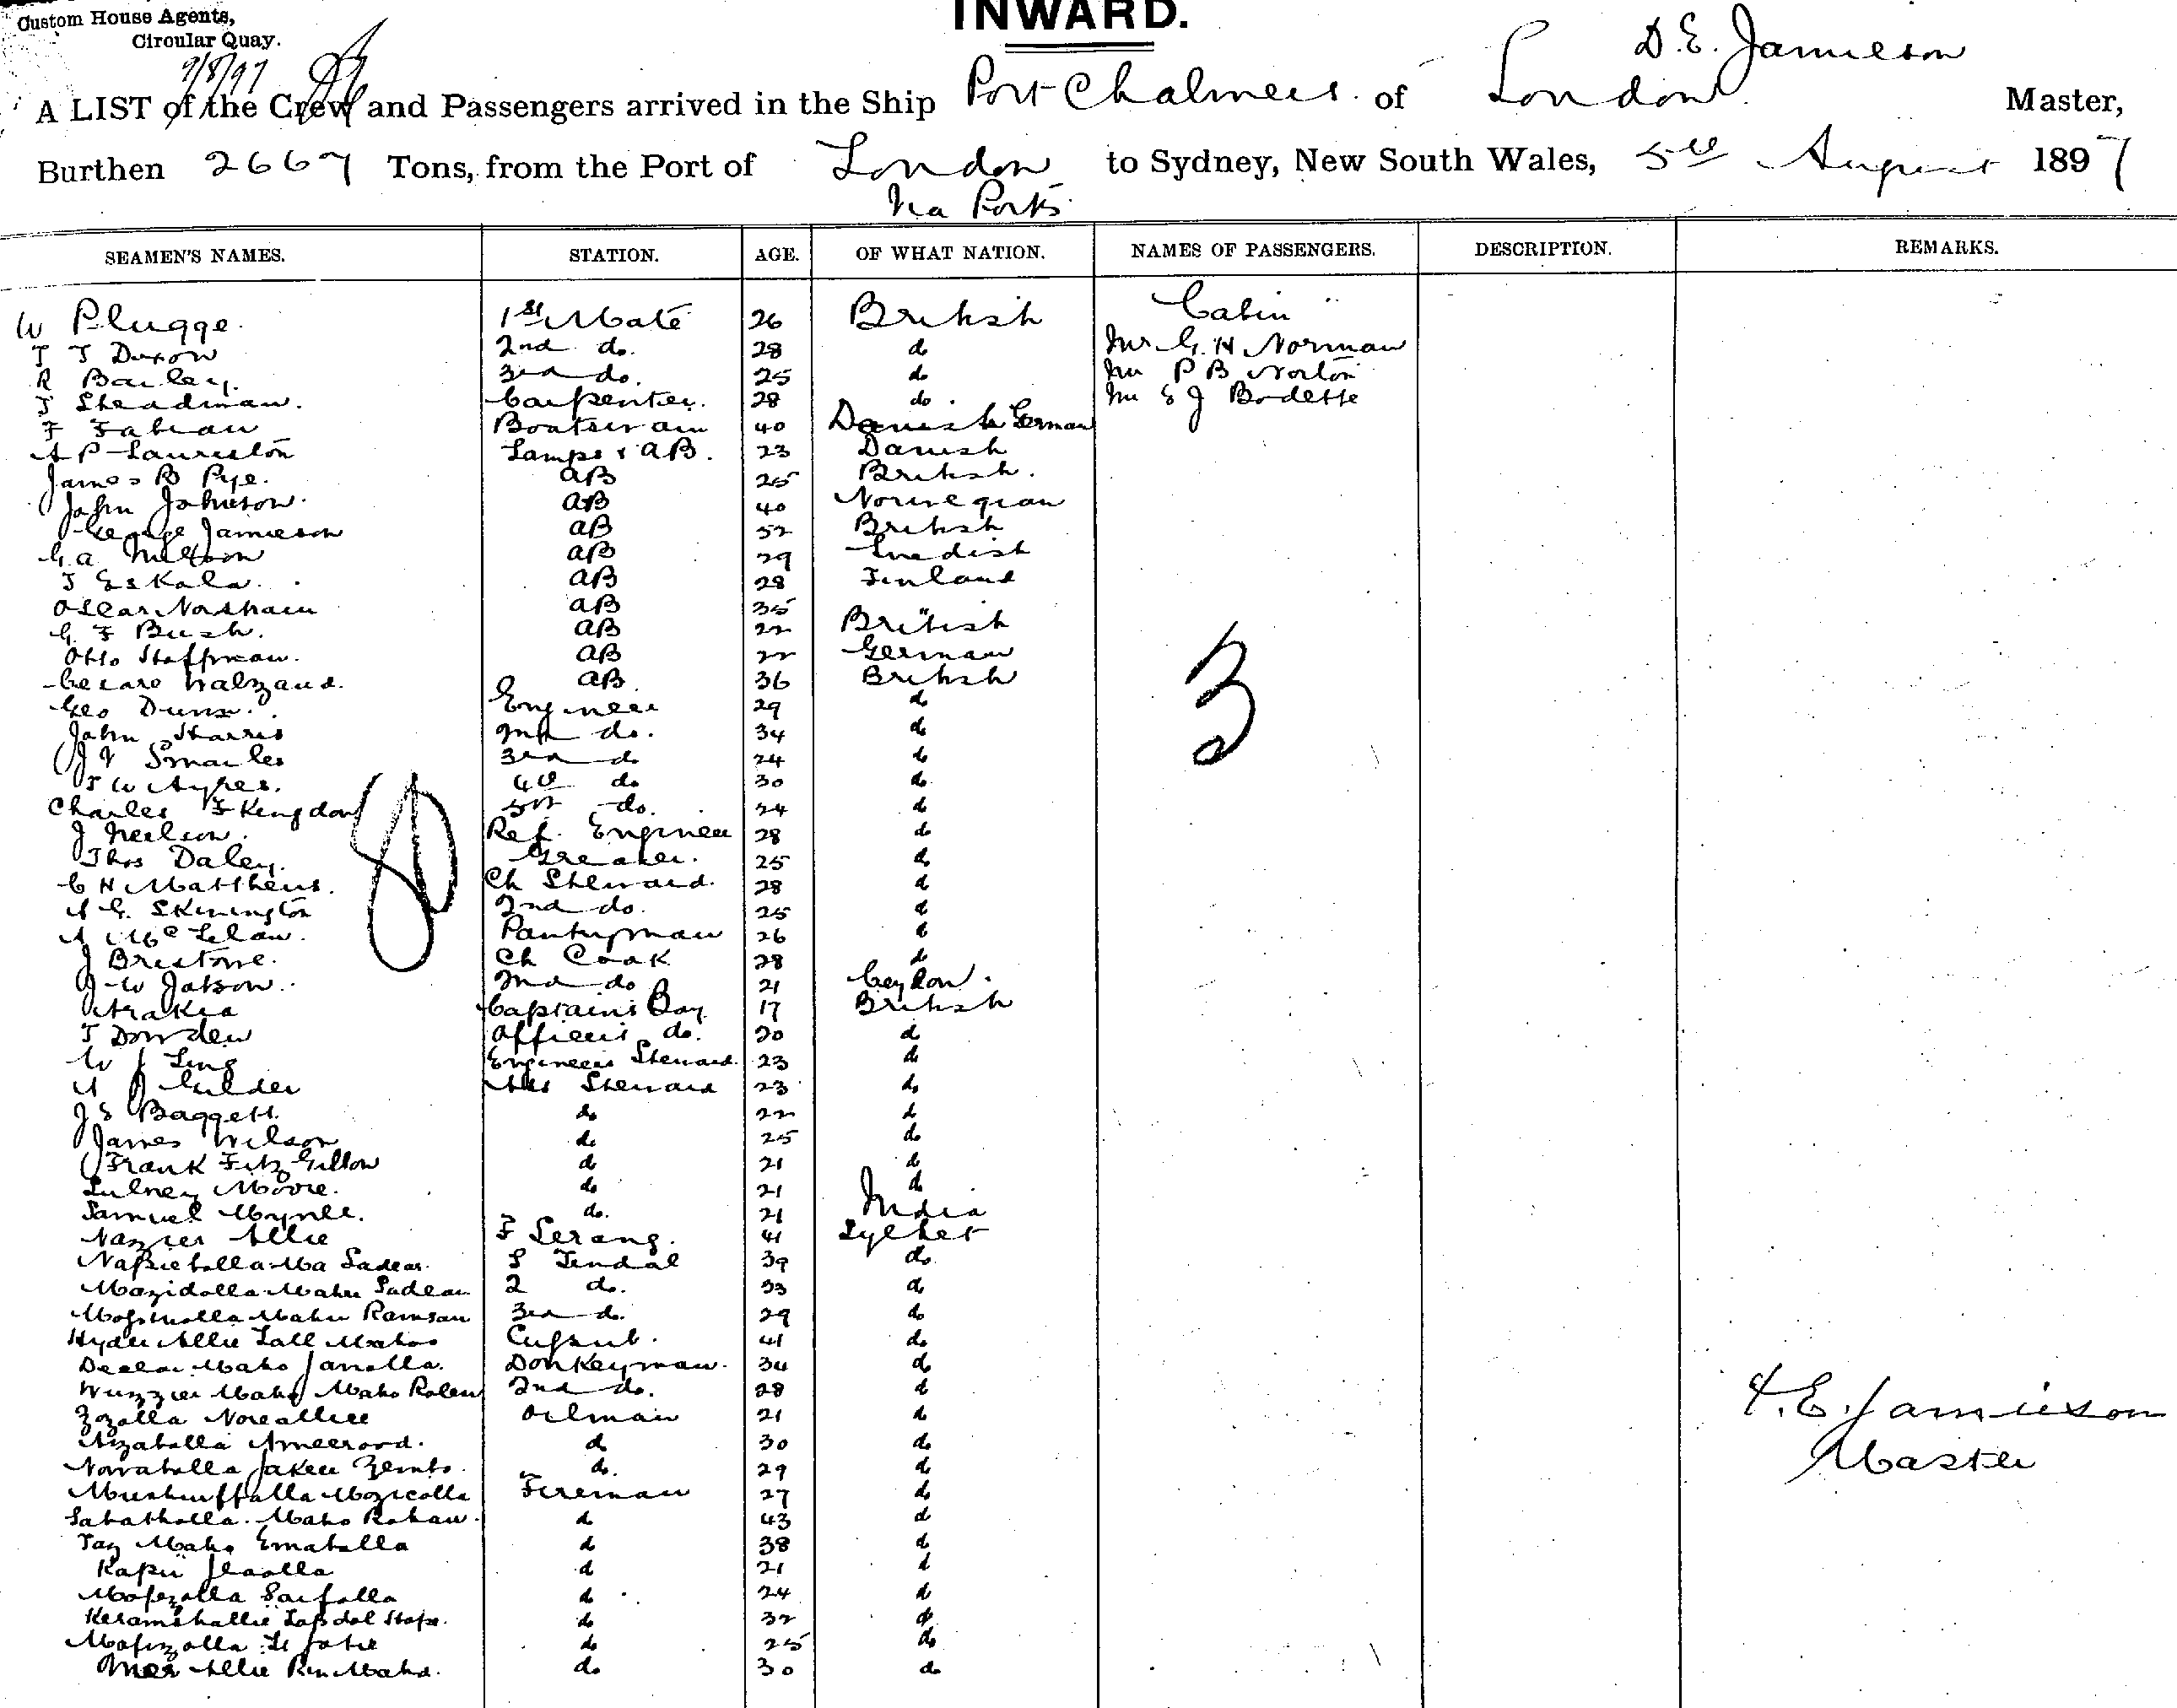 INWARD.
Custom House Agents,
Circular Quay.
9/8/97
D. E. Jamieson
A LIST of the Crew and Passengers arrived in the Ship Port Chalmers of London Master,
Burthen 2667 Tons, from the Port of London to Sydney, New South Wales, 5th August 1897
Via Ports
SEAMEN'S NAMES. STATION. AGE. OF WHAT NATION. NAMES OF PASSENGERS. DESCRIPTION. REMARKS.
W Plugge 1st Mate 26 British Cabin
T J Dixon 2nd do. 28 do Mr G. H Norman
R Bailey. 3rd do. 25 do Mr P B Norton
J Steadman. Carpenter. 28 do. Mr E J Bodette
F Fabian Boatswain 40 Danish German
A P Lauriston Lamps & AB. 23 Danish
James B Pye. AB 25 British.
John Johnson. AB 40 Norwegian
George Jamieson AB 52 British
G. A. Nilsson AB 29 Swedish
J Eskala. AB 28 Finland
Oscar AB 35 "
G. F Bush. AB 22 British
Otto Hoffman. AB 22 German
AB 36 British
Geo Dunn. Engineer 29 do
John Harris 2nd do. 34 do
J Smailes 3rd do 24 do
J W Ayres. 4th do 30 do
Charles F Kingdon 5th do. 24 do
J Neilson. Ref. Engineer 28 do
Thos Daley. Greaser. 25 do
C H Matthews. Ch Steward. 28 do
A G. Skevington 2nd do. 25 do
A McLelan. Pantryman 26 do
J Bristowe. Ch Cook 28 do
J W Jatson. 2nd do 21 Ceylon.
Captains Boy 17 British
T Dowden Officers do. 20 do
W J Ling Engineers Steward. 23 do
A J Gulder Ass Steward 23 do
J S Baggett do 22 do
James Wilson do 25 do
Frank Fitz Gillow do 21 do
Sidney Moore. do 21 do
Samuel do. 21 India
Nazier Allie F Serang. 41 Sylhet
Sadear. Tendal 39 do
Mozidolla Mahu Sadear 2 do. 33 do
Mahu Ramsan 3rd do. 29 do
Hyder Allie Lall Mahos 41 do
Maho Janolla. Donkeyman. 34 do
Wuzzier Maho Maho 2nd do. 28 do
Zozolla Noreallie Oilman 21 do
Azabolla Ameerood. do 30 do
Novabolla do. 29 do
Mozicolla Fireman 27 do
Maho Rohan. do 43 do
Taz Maho Emabolla do 38 do
do 21 do
Mofezolla Saifolla do 24 do
do 32 do
Mofizolla do 25 do
Allie Bin Mahd. do 30 do
3
D. E. Jamieson
Master